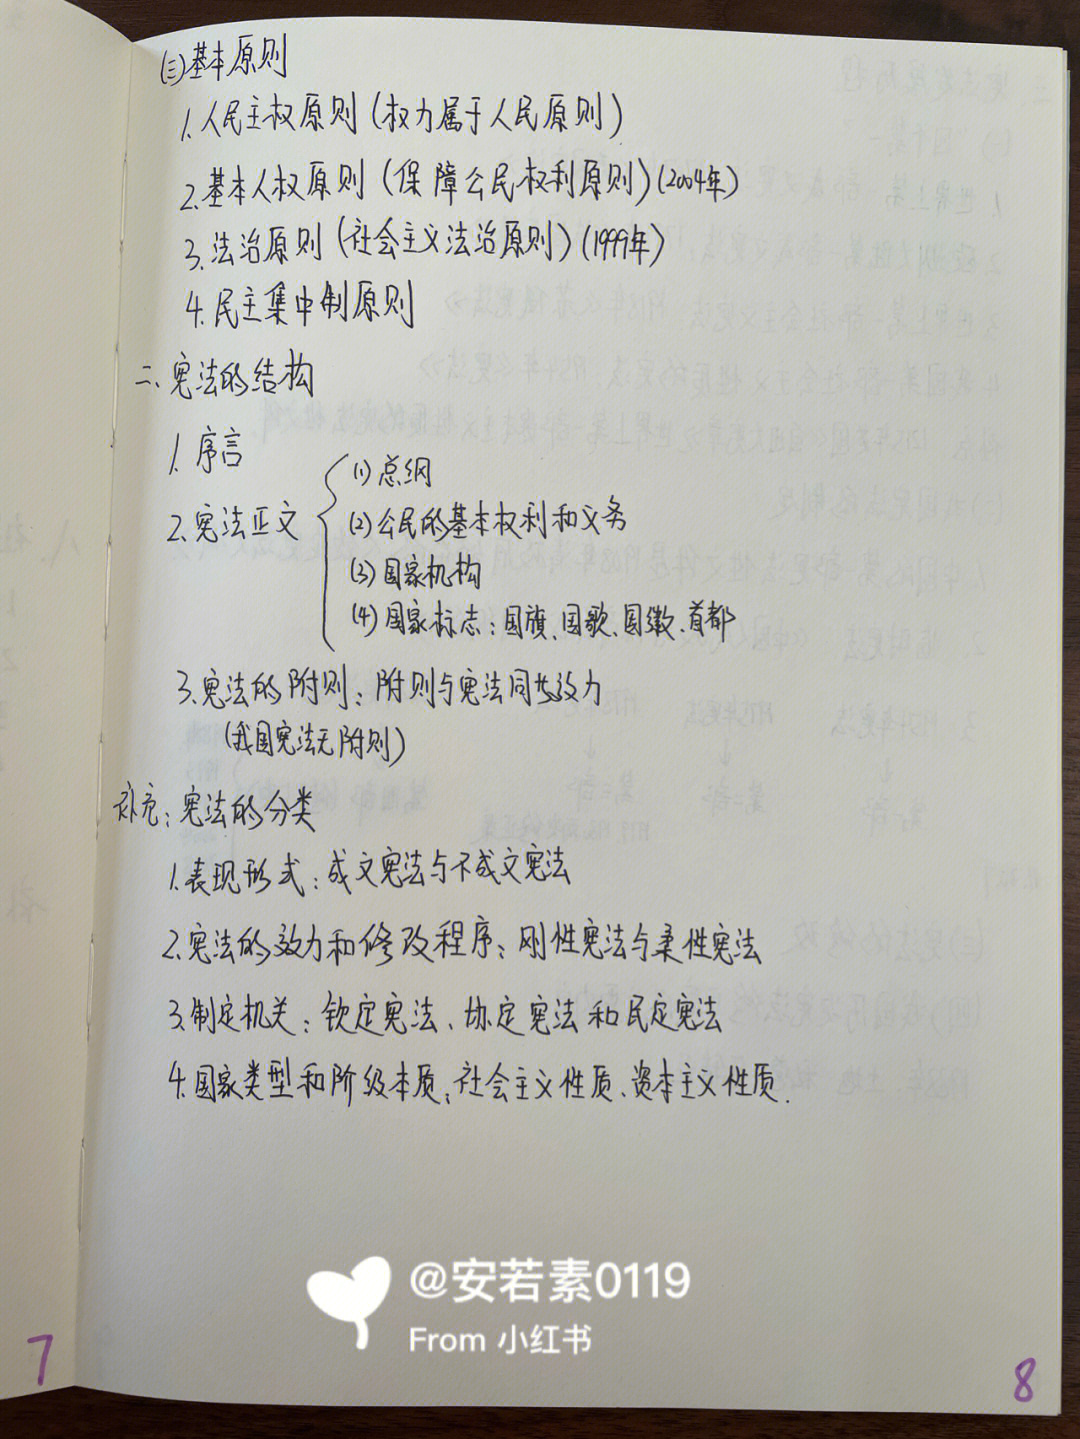 (三)基本原则
1.人民主权原则(权力属于人民原则)
2.基本人权原则(保障公民权利原则)(2004年)
3.法治原则(社会主义法治原则)(1999年)
4.民主集中制原则
二、宪法的结构
1.序言
2.宪法正文
(1)总纲
(2)公民的基本权利和义务
(3)国家机构
(4)国家标志:国旗、国歌、国徽、首都
3.宪法的附则:附则与宪法同等效力
(我国宪法无附则)
补充:宪法的分类
1.表现形式:成文宪法与不成文宪法
2.宪法的效力和修改程序:刚性宪法与柔性宪法
3.制定机关:钦定宪法、协定宪法和民定宪法
4.国家类型和阶级本质:社会主义性质、资本主义性质.
@安若素0119
From 小红书
7
8